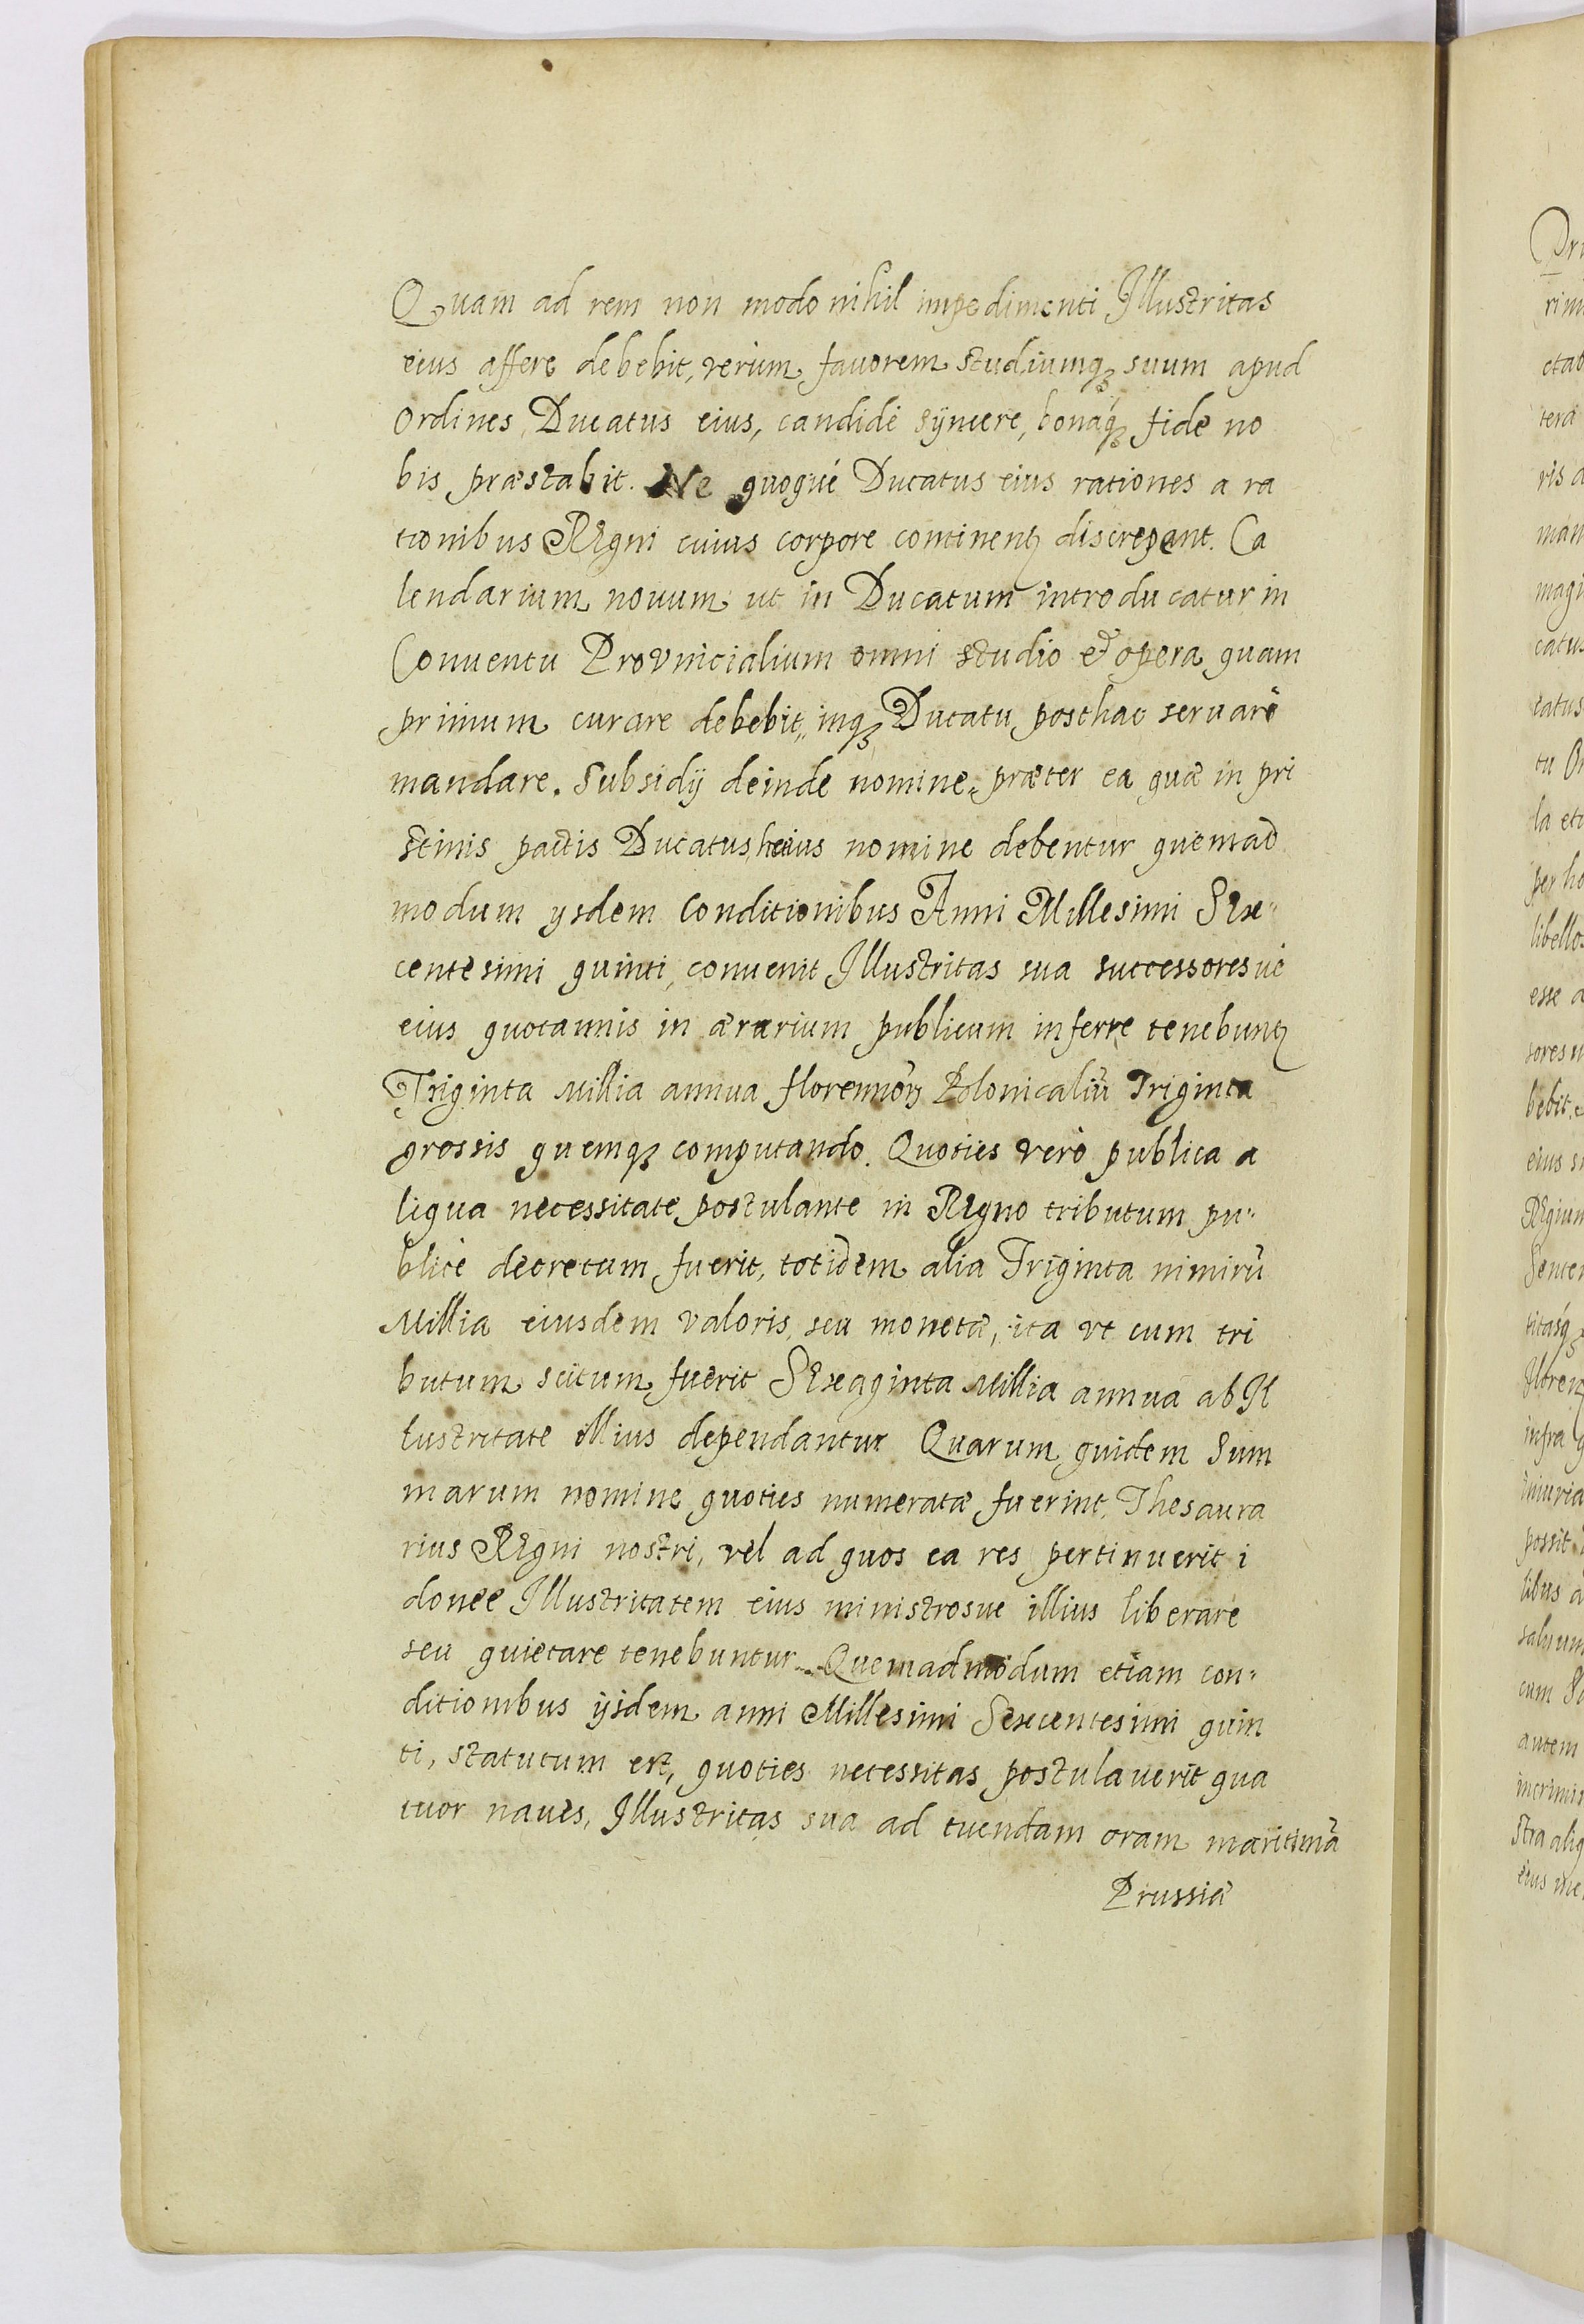 Quam ad rem non modo nihil impedimenti Illustritas
eius affere debebit, verùm fauorem studiumqꝫ suum apud
Ordines Ducatus eius, candidè sÿncere, bonáqꝫ fide no
bis præstabit. Ne quoqué Ducatus eius rationes a ra
tionibus Regni cuius corpore continentꝫ discrepent. Ca
lendarium nouum ut in Ducatum introducatur in
Conuentu Provincialium omni studio et opera quam
primum curare debebit, inqꝫ Ducatu posthac seruarè
mandare. Subsidÿ deinde nomine, præter ea quæ in pri
stinis pactis Ducatus eius nomine debentur quemad
modum ysdem Conditionibus Anni Millesimi Sex-
centesimi quinti, conuenit Illustritas sua successoresué
eius quotannis in ærarium publicum inferre tenebuntꝫ
Triginta Millia annua florenorꝫ Polonicaliū Triginta
grossis quemqꝫ computando. Quoties verò publica a
liqua necessitate postulante in Regno tributum pu-
blicè decretum fuerit, totidem alia Triginta nimirū
Millia eiusdem valoris, seu monetæ, ita vt cum tri
butum scitum fuerit Sexaginta Millia annua ab Il
lustritate illius dependantur Quarum quidem Sum
marum nomine quoties numeratæ fuerint, Thesaura
rius Regni nostri, vel ad quos ea res pertinuerit i
donee Illustritatem eius ministrosue illius liberare
seu quietare tenebuntur. Quemadmodum etiam con-
ditionibus ÿsdem anni Millesimi Sexcentesimi quin
ti, statutum est, quoties necessitas postulauerit qua
tuor naues, Illustritas sua ad tuendam oram maritimā
Prussiæ